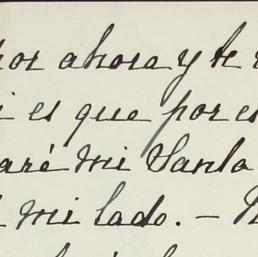 por ahora y te
i es que por es
aré mi Santa
mi lado. —